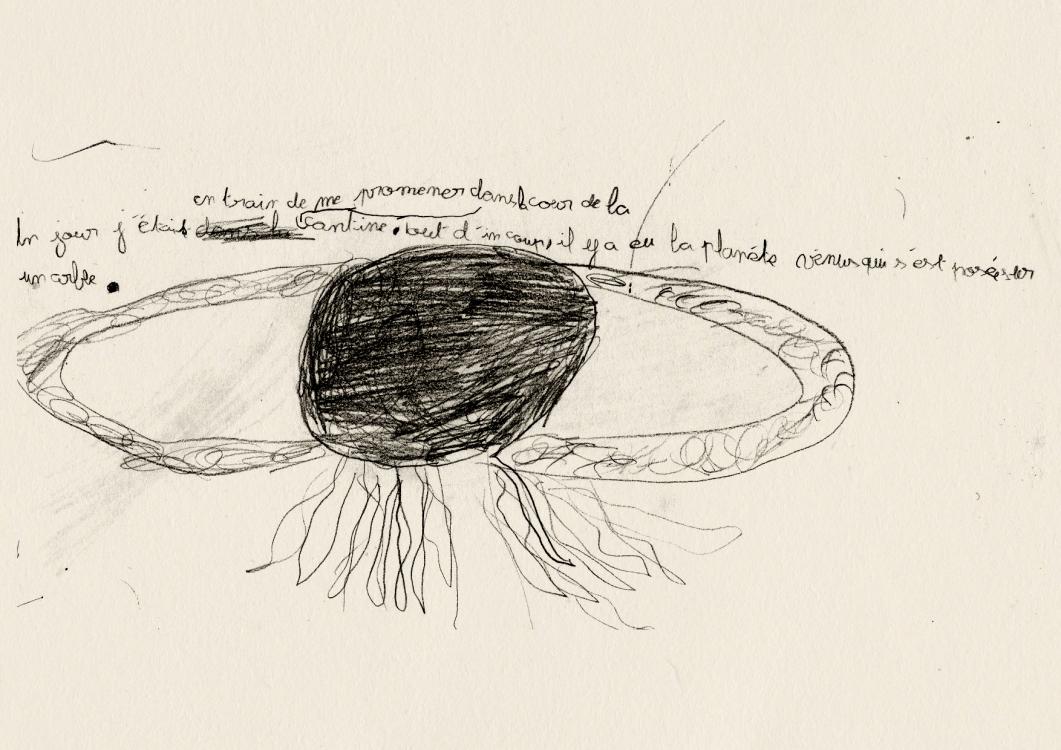 en train de me promener dans la cour de la
un jour j'étais dans la cantine. tout d'un coup, il y a eu la planéte vénus qui s'est posée sur
un arbre.